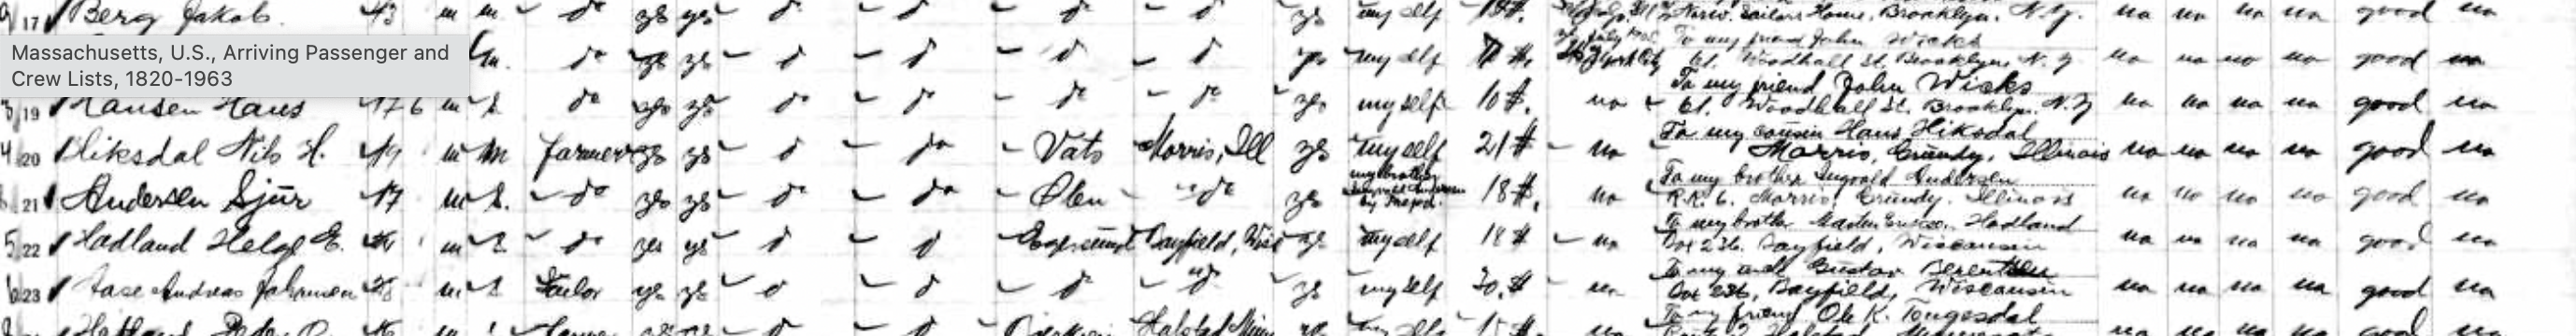 17 Berg Jakob. 43 m m do yes yes do do do do yes myself Norw. Sailors Home, Brooklyn, N.Y. no no no no good no
Massachusetts, U.S., Arriving Passenger and
Crew Lists, 1820-1963
m. do yes yes do do do do yes myself To my friend John Wicks
61. Woodhall St. Brooklyn N.Y no no no no good no
19 Hansen Hans 17 6 m s. do yes yes do do do do yes myself 10 $. no To my friend John Wicks
61. Woodhall St. Brooklyn. N.Y no no no no good no
20 Hiksdal Nils H. 49 m m farmer yes yes do do Vats Morris, Ill yes myself 21 $ no To my cousin Hans Hiksdal
Morris, Grundy, Illinois no no no no good no
21 Andersen Sjur 17 m s. do yes yes do do Ølen do yes my brother 18 $. no To my brother Ingvald Andersen
R.R. 6. Morris, Grundy. Illinois no no no no good no
22 Hadland Helge E. m s do yes yes do do Egersund Bayfield, Wisc yes myself 18 $ no To my brother Hadland
Box 236. Bayfield, Wisconsin no no no no good no
23 Aase Andreas m s Tailor yes yes do do do do yes myself 30.$ no To my Gustav Berentsen
Box 236, Bayfield, Wisconsin no no no no good no
Halstad Minn To my friend Ole K. Tengesdal